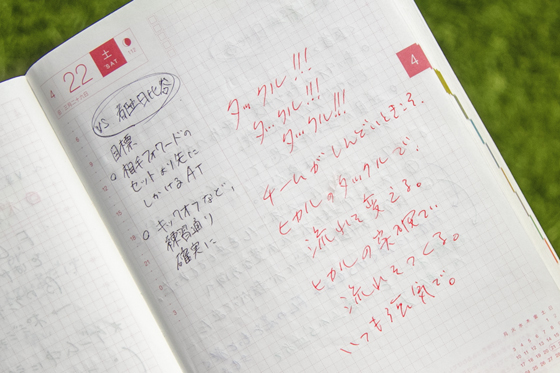 4
22
土
SAT
4
vs 都立日比谷
目標
○相手フォワードの
セットより先に
しかけるAT
○キックオフなど、
練習通り
確実に
タックル!!!
タックル!!!
タックル!!!
チームがしんどいときこそ、
ヒカルのタックルで、
流れを変える。
ヒカルの突破で、
流れをつくる。
いつも強気で。